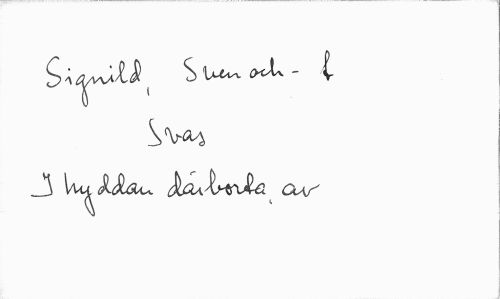 Signild, Sven och - f
Svas
I hyddan därborta, av